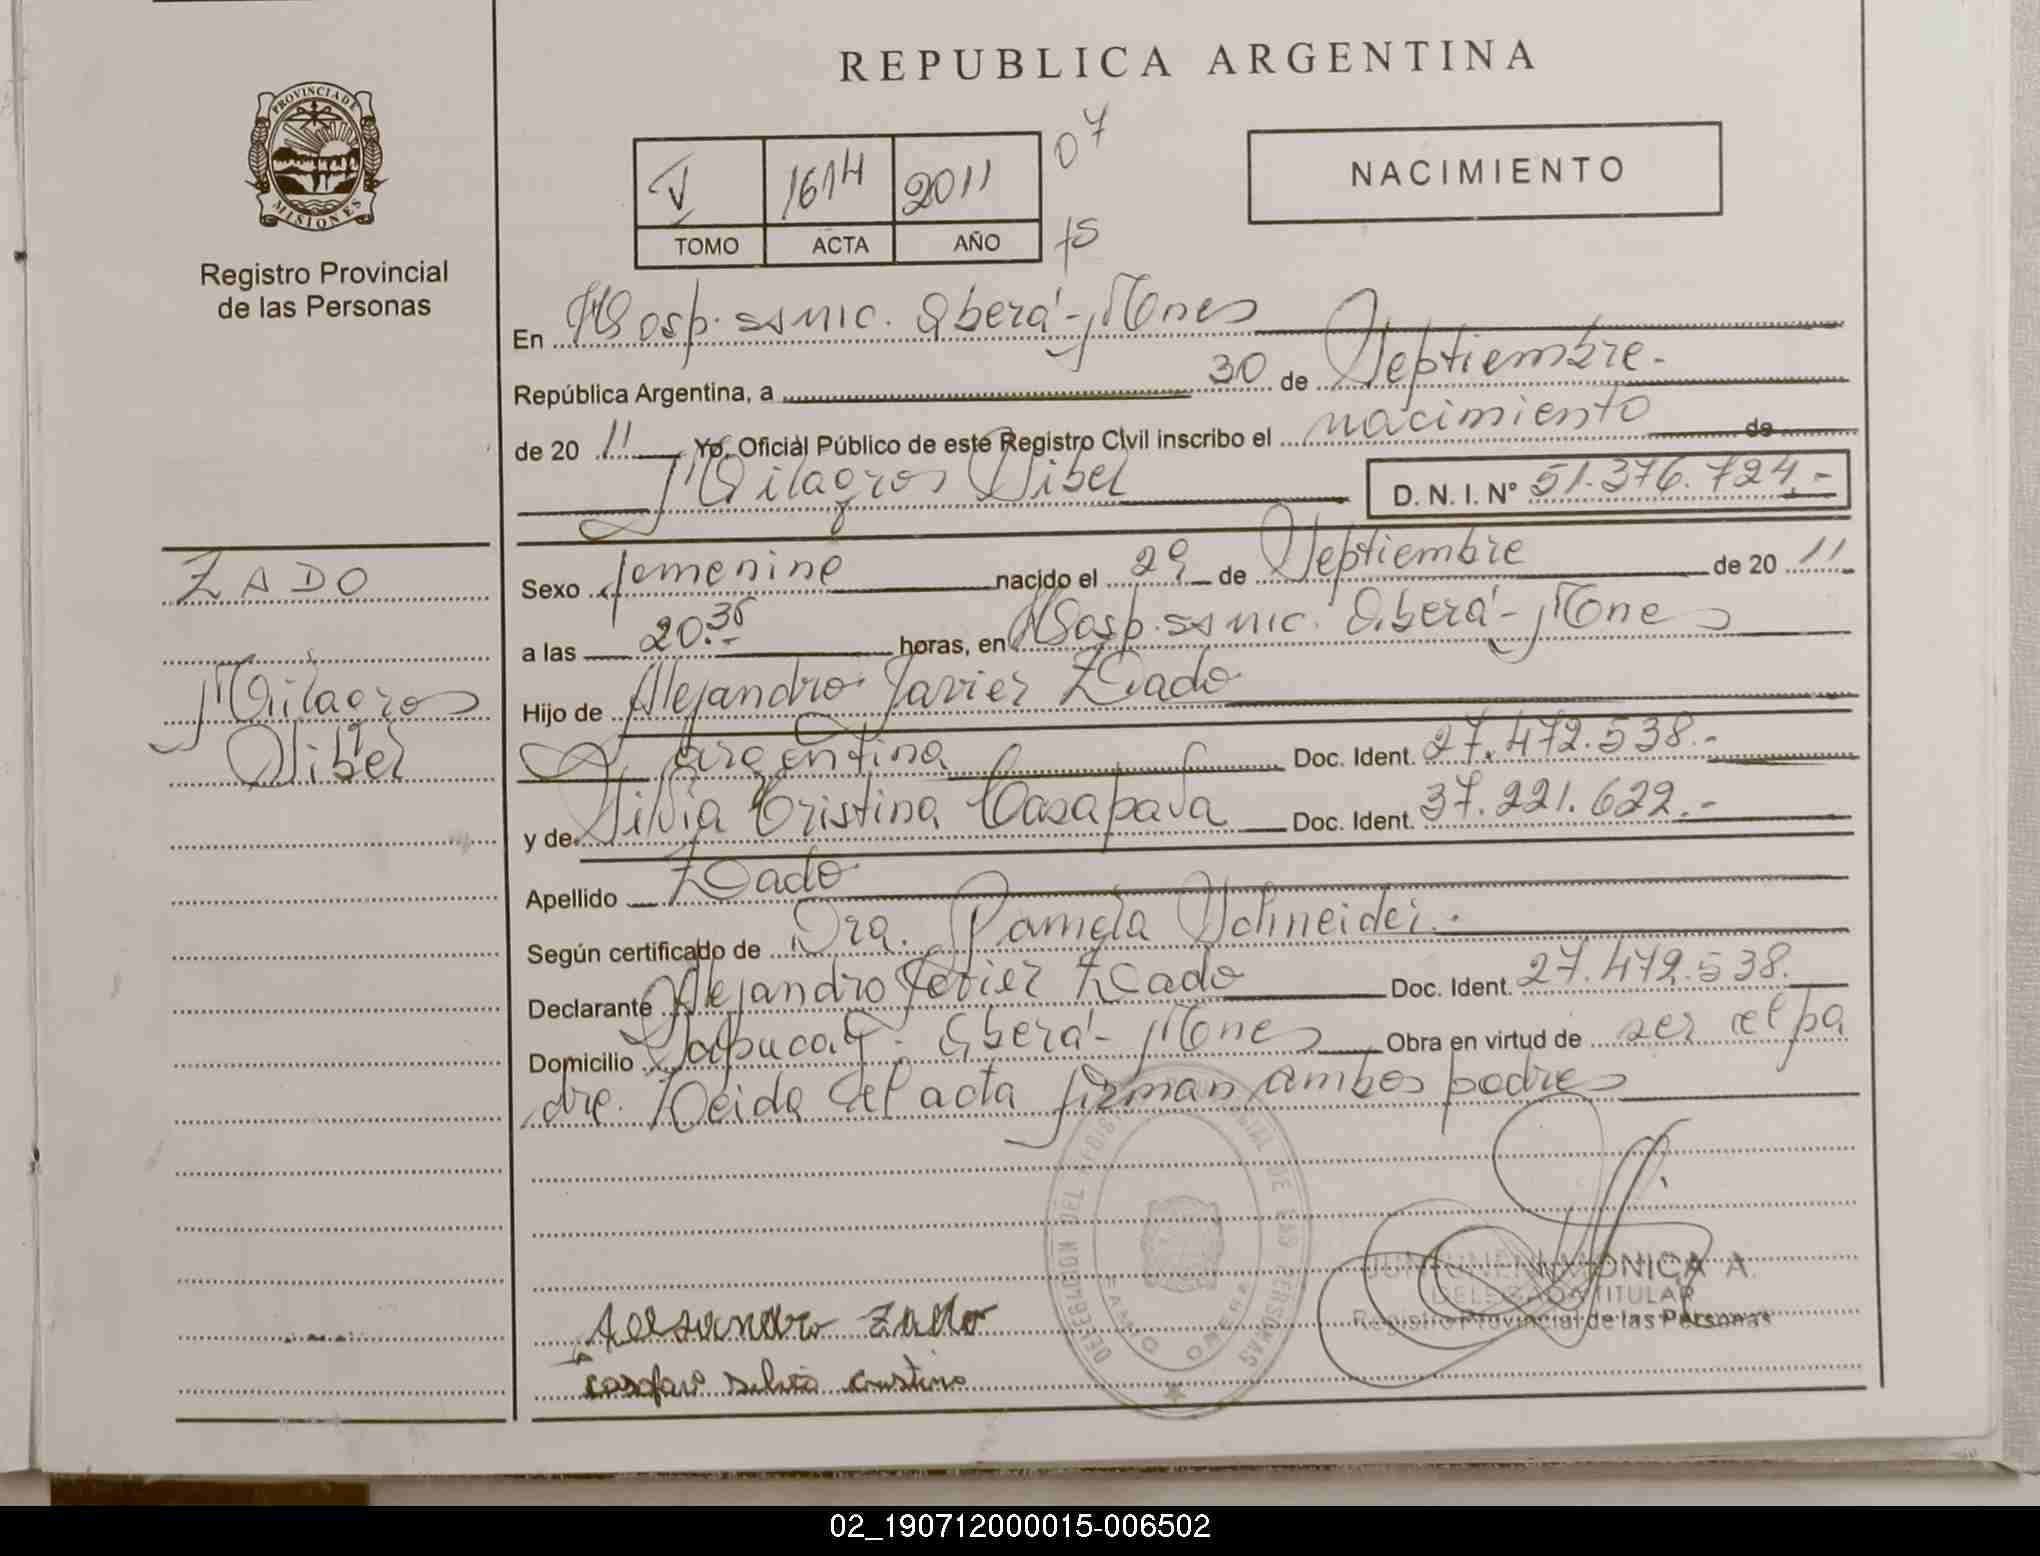 REPUBLICA ARGENTINA
PROVINCIA DE
MISIONES
Registro Provincial
de las Personas
V 1614 2011
TOMO ACTA AÑO
07
15
NACIMIENTO
En Hosp. ssmic. Oberá - Mnes
República Argentina, a 30 de Septiembre.-
de 20 11 Yo, Oficial Público de este Registro Civil inscribo el nacimiento de
Milagros Sibel D. N. I. Nº 51.376.724.-
ZADO
Milagros
Sibel
Sexo femenino nacido el 29 de Septiembre de 20 11
a las 20.35 horas, en Hosp. ssmic. Oberá - Mnes
Hijo de Alejandro Javier Zado
Argentina Doc. Ident. 27.472.538.-
y de Silvia Cristina Casapava Doc. Ident. 37.221.622.-
Apellido Zado
Según certificado de Dra. Pamela Schneider.
Declarante Alejandro Javier Zado Doc. Ident. 27.472.538.
Domicilio Sapucay - Oberá - Mnes Obra en virtud de ser el pa
dre. Leida el acta firman ambos padres
DELEGACION DEL REGISTRO PROVINCIAL DE LAS PERSONAS
OBERA
MONICA A.
DELEGADA TITULAR
Registro Provincial de las Personas
Alejandro Zado
Silvia Cristina
02_190712000015-006502